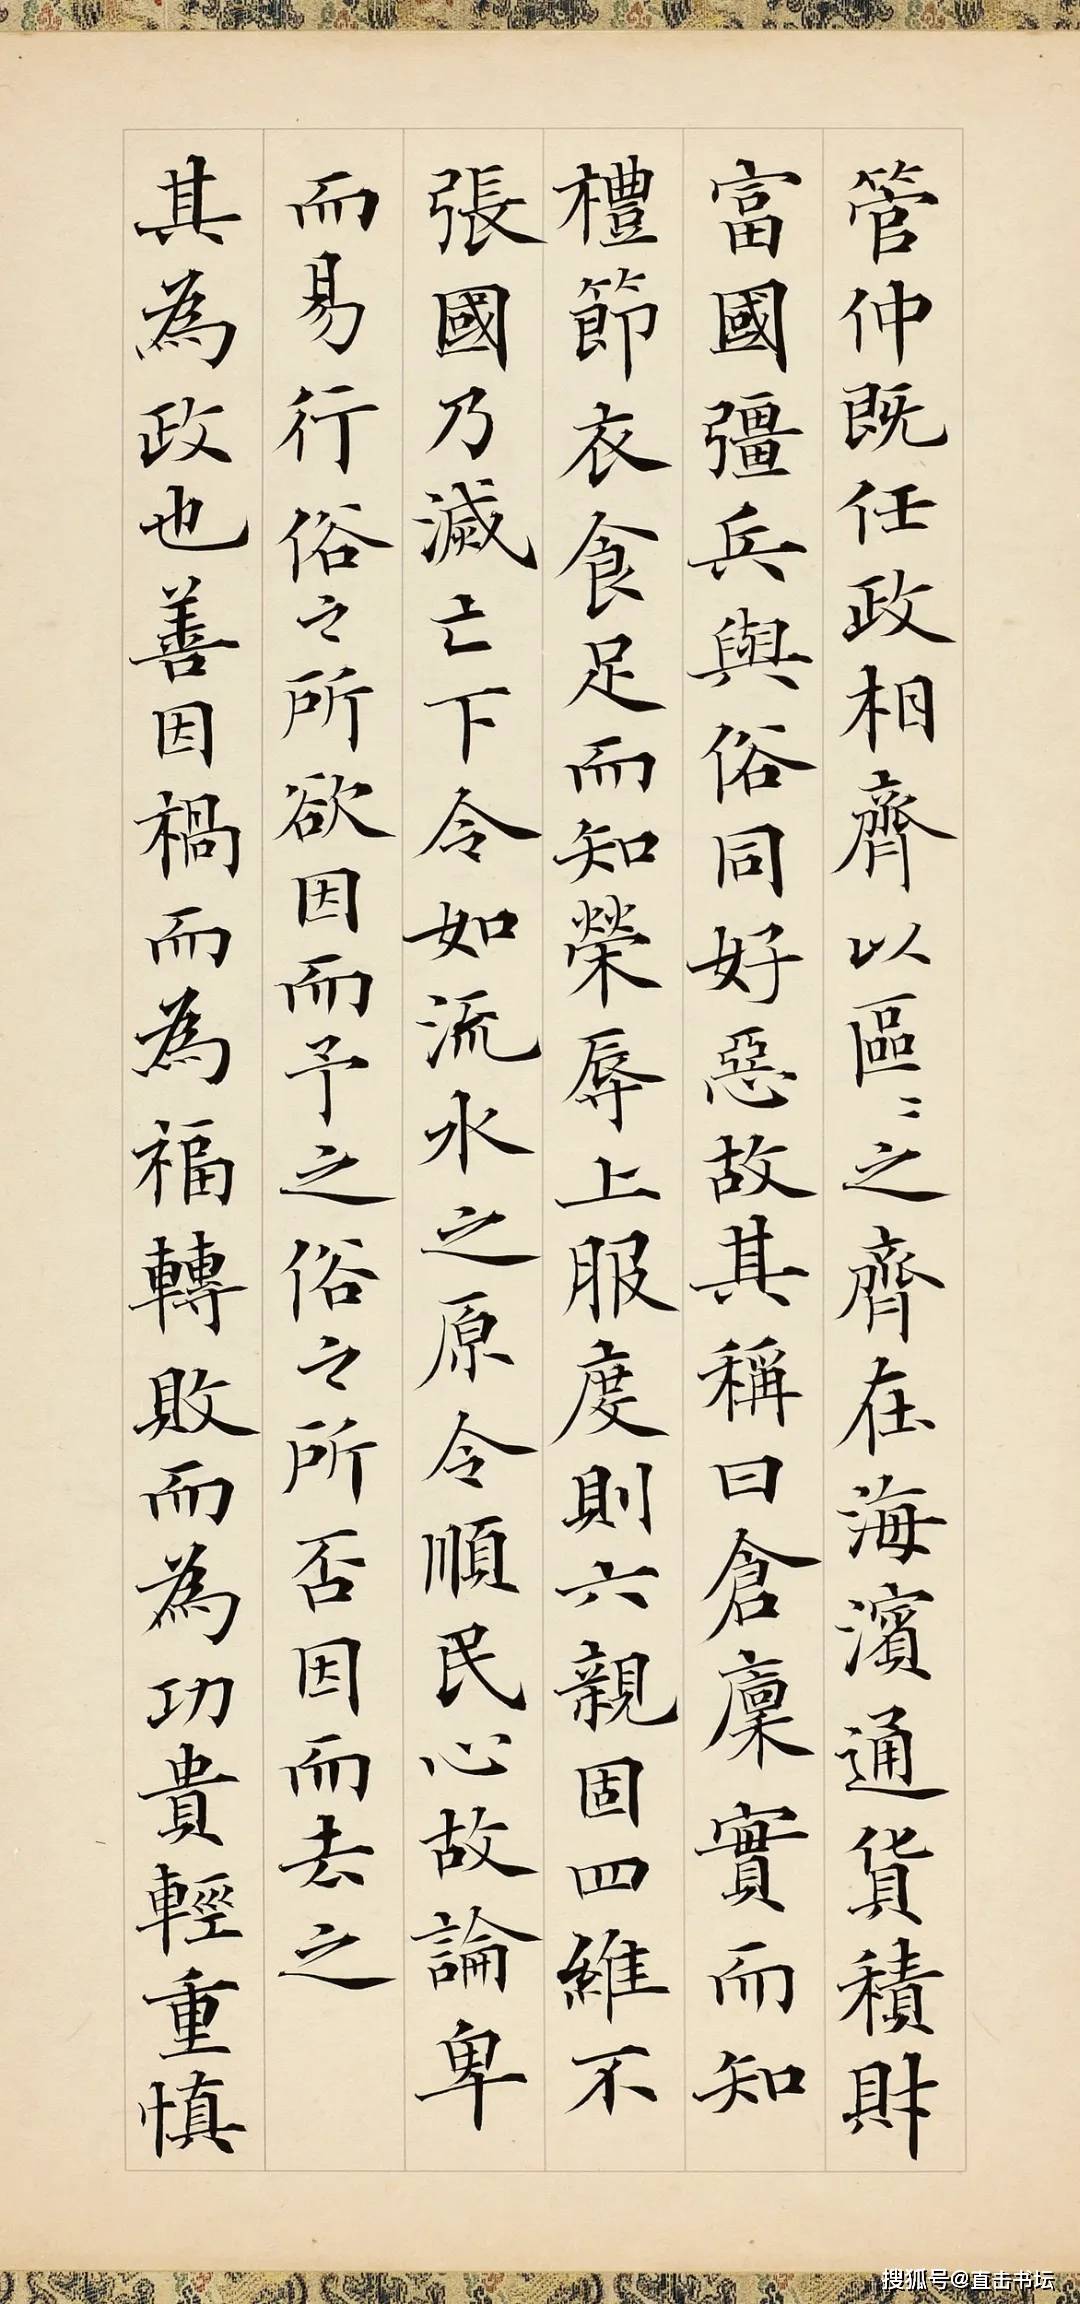 管仲既任政相齊以區〻之齊在海濱通貨積財
富國彊兵與俗同好惡故其稱曰倉廩實而知
禮節衣食足而知榮辱上服度則六親固四維不
張國乃滅亡下令如流水之原令順民心故論卑
而易行俗之所欲因而予之俗之所否因而去之
其為政也善因禍而為福轉敗而為功貴輕重慎
搜狐号@直击书坛